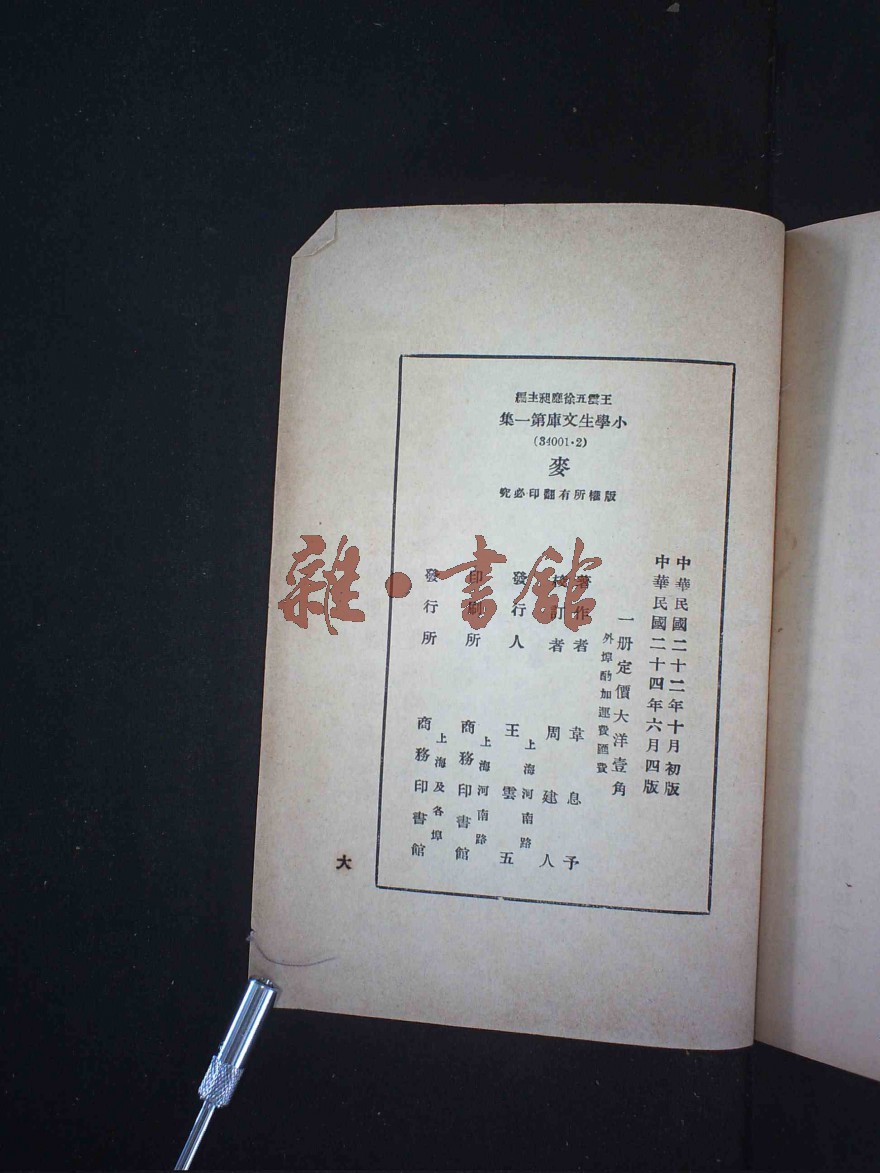 王雲五徐應昶主編
小學生文庫第一集
(34001·2)
麥
版權所有翻印必究
中華民國二十二年十月初版
中華民國二十四年六月四版
一册定價大洋壹角
外埠酌加運費匯費
著作者 韋息予
校訂者 周建人
發行人 上海河南路 王雲五
印刷所 上海河南路 商務印書館
發行所 上海及各埠 商務印書館
大
雜·書館